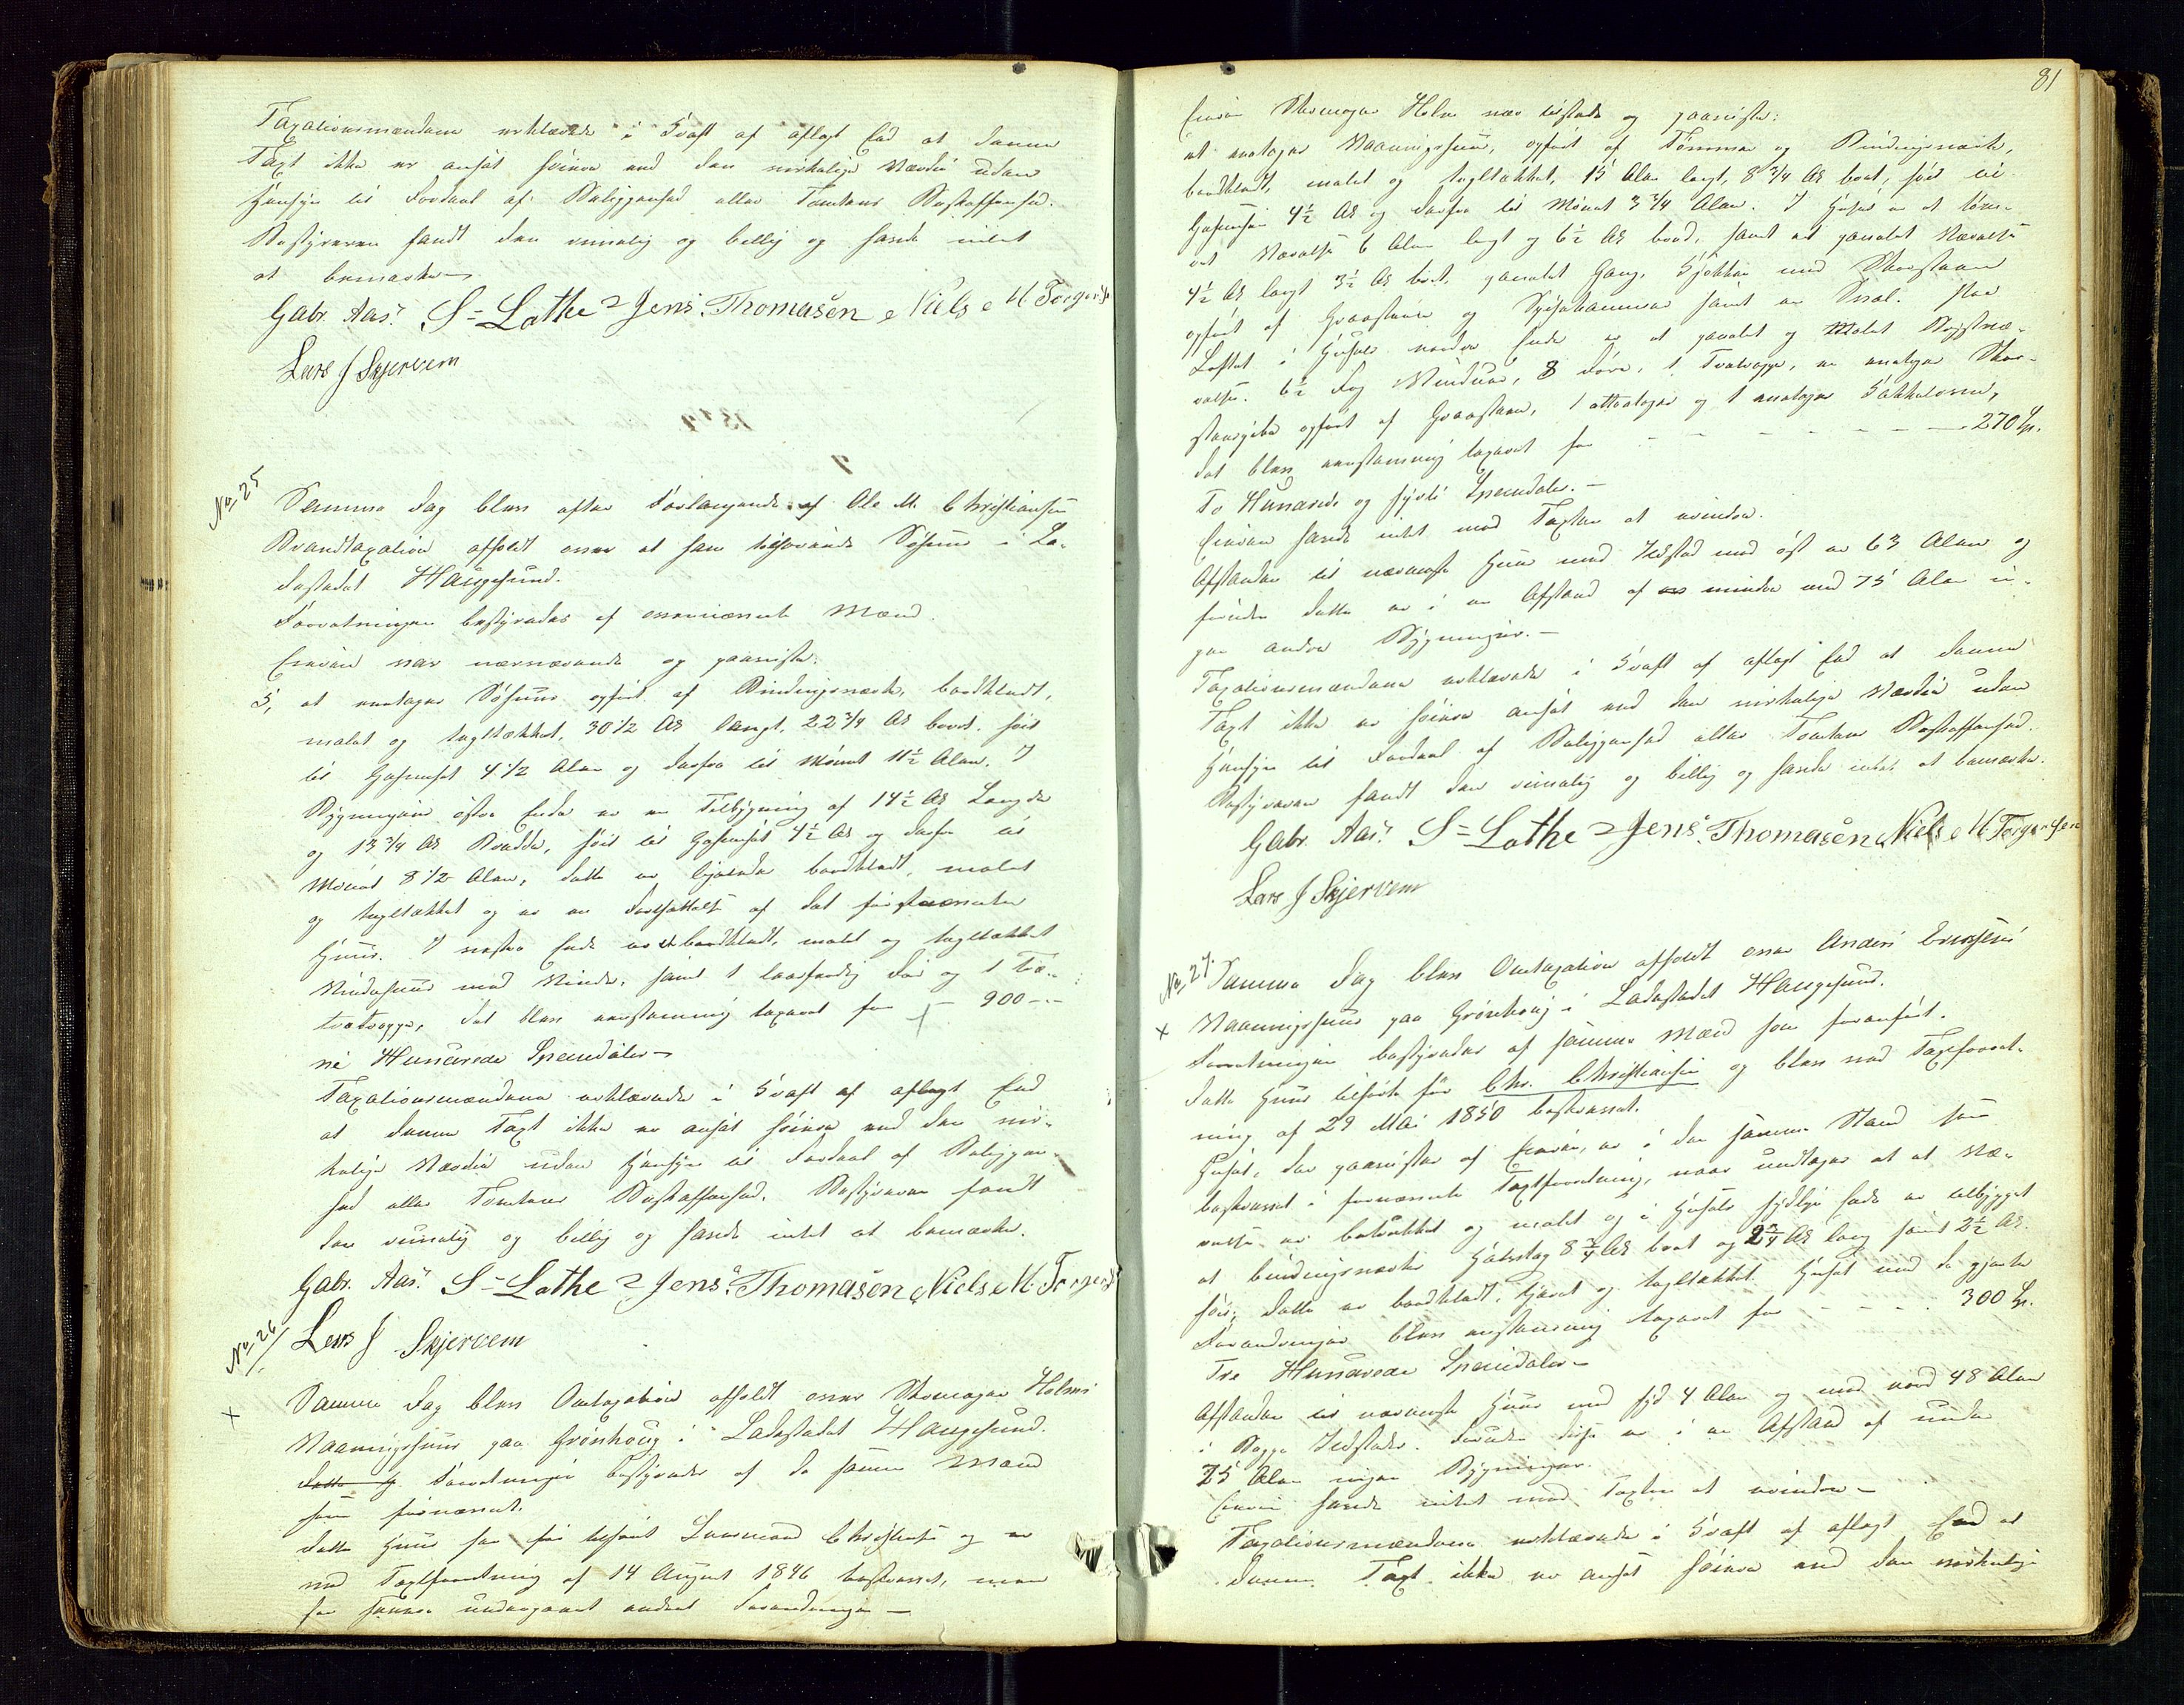 Taxationsmændene erklærede i Kraft af aflagt Eed at denne
Taxt ikke er ansat høiere end den virkelige Værdie uden
Hensyn til Fordeel af Beliggenhed eller Tomtens Beskaffenhed.
Bestyreren fandt den rimelig og billig og havde intet
at bemærke
Gabr. Aas. S= Lothe Jens Thomasen Niels M. Torgers
Lars J Skjervem
No 25
Samme Dag blev efter Forlangende af Ole M. Christiansen
Brandtaxation afholdt over et ham tilhørende Søhuus i La-
destedet Haugesund.
Forretningen bestyredes af ovennævnte Mænd.
Eieren var nærværende og paaviste:
et eenetages Søhuus opført af Bindingsværk, bordklædt,
malet og tegltækket, 30 1/2 Al langt, 22 3/4 Al bredt, høit
til Gesimset 4 1/2 Alen og derfra til Mønet 11 1/2 Alen. I
Bygningens østre Ende er en Tilbygning af 14 1/2 Al Længde
og 13 3/4 Al Bredde, høit til Gesimset 4 1/2 Al og derfra til
Mønet 8 1/2 Alen, dette er ligeledes bordklædt, malet
og tegltækket og er en Fortsættelse af det førstnævnte
Huus. I vestre Ende er et bordklædt, malet og tegltækket
Vindehuus med Vinde, samt 1 Dør og 1 Træ-
trætrappe, det blev eenstemmig taxeret for – 900 –
ni Hundrede Speciedaler –
Taxationsmændene erklærede i Kraft af aflagt Eed
at denne Taxt ikke er ansat høiere end den vir-
kelige Værdie uden Hensyn til Fordeel af Beliggen-
hed eller Tomtens Beskaffenhed. Bestyreren fandt
den rimelig og billig og havde intet at bemærke.
Gabr. Aas. S= Lothe Jens Thomasen Niels M. Torgers
No 26
Lars J Skjervem
Samme Dag blev Omtaxation afholdt over Skomager Holms
Vaaningshuus paa Grønhoug i Ladestedet Haugesund.
Forretningen bestyredes af de samme Mænd
som førnævnt.
Dette Huus har før tilhørt Christensen og er
ved Taxtforretning af 14 August 1846 beskrevet, men
har senere undergaaet endeel Forandringer –
81
Eieren Skomager Holm var tilstede og paaviste:
et eenetages Vaaningshuus, opført af Tømmer og Bindingsværk,
bordklædt, malet og tegltækket, 15 Alen langt, 8 3/4 Al bredt, høit til
Gesimsen 4 1/2 Al og derfra til Mønet 3 3/4 Alen. I Huset er et tømre-
ret Værelse 6 Alen langt og 6 1/2 Al bred, samt et panelet Værelse
4 1/2 Al langt 3 1/2 Al bredt, panelet Gang, Kjøkken med Skorsteen
opført af Graasteen og Spisekammer samt en Sval. Paa
Loftet i Husets nordre Ende er et panelet og malet Qvistvæ-
relse. 6 1/2 Fag Vinduer, 8 Døre, 1 Trætrappe, en eenetages Skor-
steenspibe opført af Graasteen, 1 etages og 1 eenetages Kakkelovn,
det blev eenstemmig taxeret for – – – – – – 270 Sp.
To Hundrede og sytti Speciedaler. –
Eieren havde intet mod Taxten at erindre.
Afstanden til nærmeste Huus med Ildsted mod øst er 63 Alen og
foruden dette er i en Afstand af mindre end 75 Alen in-
gen andre Bygninger. –
Taxationsmændene erklærede i Kraft af aflagt Eed at denne
Taxt ikke er høiere ansat end den virkelige Værdie uden
Hensyn til Fordeel af Beliggenhed eller Tomtens Beskaffenhed.
Bestyreren fandt den rimelig og billig og havde intet at bemærke.
Gabr. Aas. S= Lothe Jens Thomasen Niels M. Torgersen
Lars J Skjervem
No 27.
Samme Dag blev Omtaxation afholdt over Anders Ericksens
Vaaningshuus paa Grønhoug i Ladestedet Haugesund.
Forretningen bestyredes af samme Mænd som foranført.
Dette Huus tilhørte før Chr. Christiansen og blev ved Taxtforret-
ning af 29 Mai 1850 beskrevet.
Huset, der paavistes af Eieren, er i den samme Stand som
beskrevet i fornævnte Taxtforretning, naar undtages at et Væ-
relse er betrukket og malet og i Husets sydlige Ende er tilbygget
et bindingsværks Halvtag 8 3/4 Al bredt og 2 3/4 Al lang samt 2 1/2 Al
høit, dette er bordklædt, tjæret og tegltækket. Huset med de gjorte
Forandringer blev eenstemmig taxeret for – – – – 300 Sp.
Tre Hundrede Speciedaler –
Afstanden til nærmeste Huus mod syd 4 Alen og mod nord 48 Alen
i Begge Ildsteder. Foruden disse er i en Afstand af under
75 Alen ingen Bygninger.
Eieren havde intet mod Taxten at erindre –
Taxationsmændene erklærede i Kraft af aflagt Eed at
denne Taxt ikke er ansat høiere end den virkelige